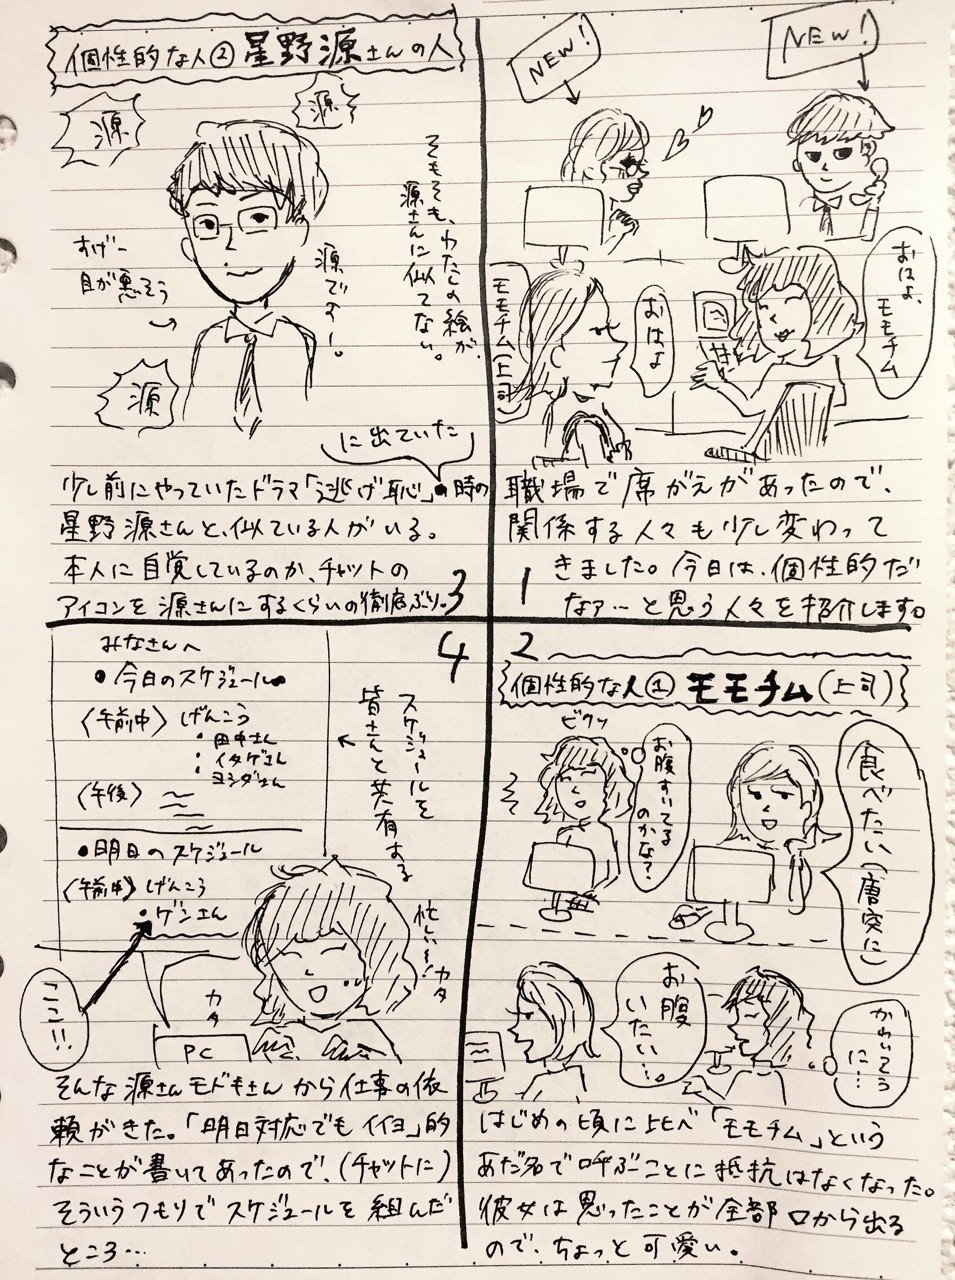 NEW!
NEW!
おはよ、
モモチム
おはよ
モモチム(上司)
職場で席がえがあったので、
関係する人々も少し変わって
きました。今日は、個性的だ
なァ…と思う人々を紹介します。
1
2
個性的な人① モモチム(上司)
食べたい(唐突に)
お腹すいてる
のかな?
ビクッ
お腹
いたい…。
かわいそう
に…
はじめの頃に比べ「モモチム」という
あだ名で呼ぶことに抵抗はなくなった。
彼女は思ったことが全部口から出る
ので、ちょっと可愛い。
個性的な人② 星野源さんの人
源
源
そもそも、わたしの絵が、
源さんに似てない。
源です!。
すげー
目が悪そう
源
に出ていた
少し前にやっていたドラマ「逃げ恥」の時の
星野源さんと、似ている人がいる。
本人に自覚しているのか、チャットの
アイコンを源さんにするくらいの徹底ぶり。
3
4
みなさんへ
・今日のスケジュール
〈午前中〉げんこう
・田中さん
・イタゲさん
・ヨシダさん
〈午後〉
・明日のスケジュール
〈午前中〉げんこう
・ゲンさん
スケジュールを
皆さんと共有する
忙しい~!
カタ
カタ
ここ!!
PC
そんな源さんモドキさんから仕事の依
頼がきた。「明日対応でもイイヨ」的
なことが書いてあったので、(チャットに)
そういうつもりでスケジュールを組んだ
ところ…